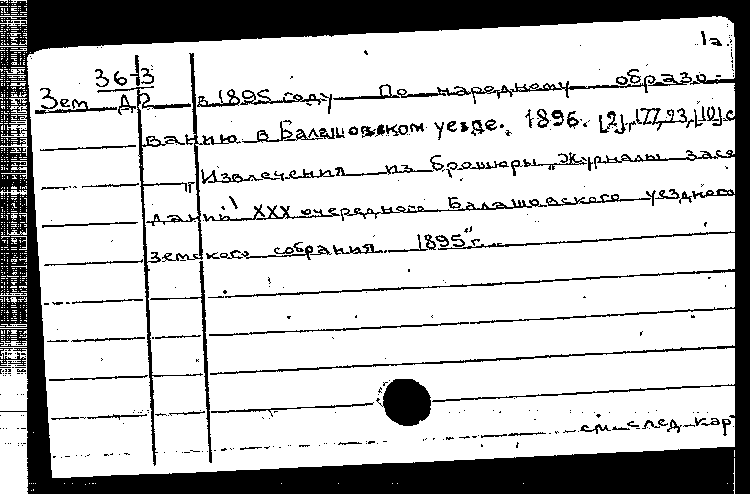 1а
36-3
Зем Д2 в 1895 году По народному образо-
ванию в Балашовском уезде. 1896. [2], 177, 23, [10] с
"Извлечения из брошюры „Журналы засе
даний XXX очередного Балашовского уездного
земского собрания 1895" г.
см. след кар